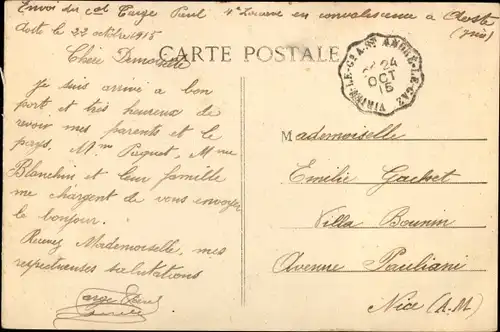 Envoi du cal Targe Paul 4e Zouave en convalescence a Aoste
Aoste le 22 octobre 1915 (Isère)
CARTE POSTALE
Chère Demoiselle
Je suis arrivé a bon
port et très heureux de
revoir mes parents et le
pays. Mme Piquet, Mme
Blanchin et leur famille
me chargent de vous envoyer
le bonjour.
Recevez Mademoiselle, mes
respectueuses salutations
Targe Paul
VIRIEU-LE-GD A ST ANDRÉ-LE-GAZ
24
OCT
15
Mademoiselle
Emilie Gachet
Villa Bounin
Avenue Pauliani
Nice (A.-M.)